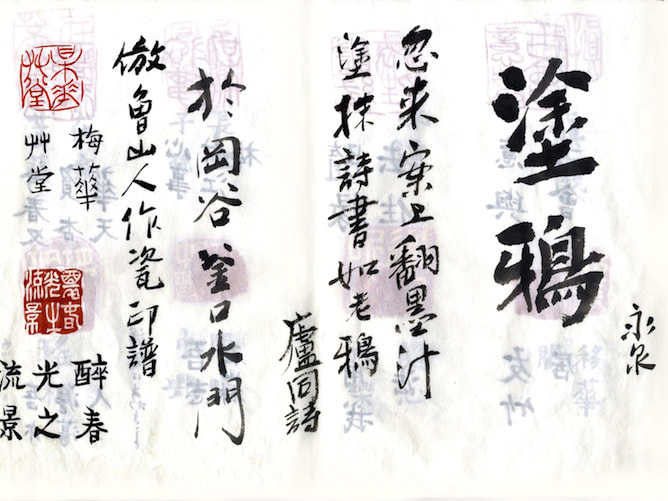 永泉
塗鴉
忽来案上翻墨汁
塗抹詩書如老鴉
廬同詩
於岡谷釜口水門
倣魯山人作瓷印譜
梅華
艸堂
醉春
光之
流景